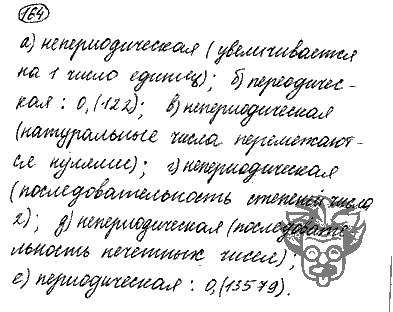 164
а) непериодическая (увеличивается
на 1 число единиц); б) переодичес-
кая : 0,(122); в) непериодическая
(натуральные числа перемежают-
ся нулями); г) непериодическая
(последовательность степеней числа
2); д) непериодическая (последовате-
льность нечетных чисел);
е) периодическая : 0,(13579).